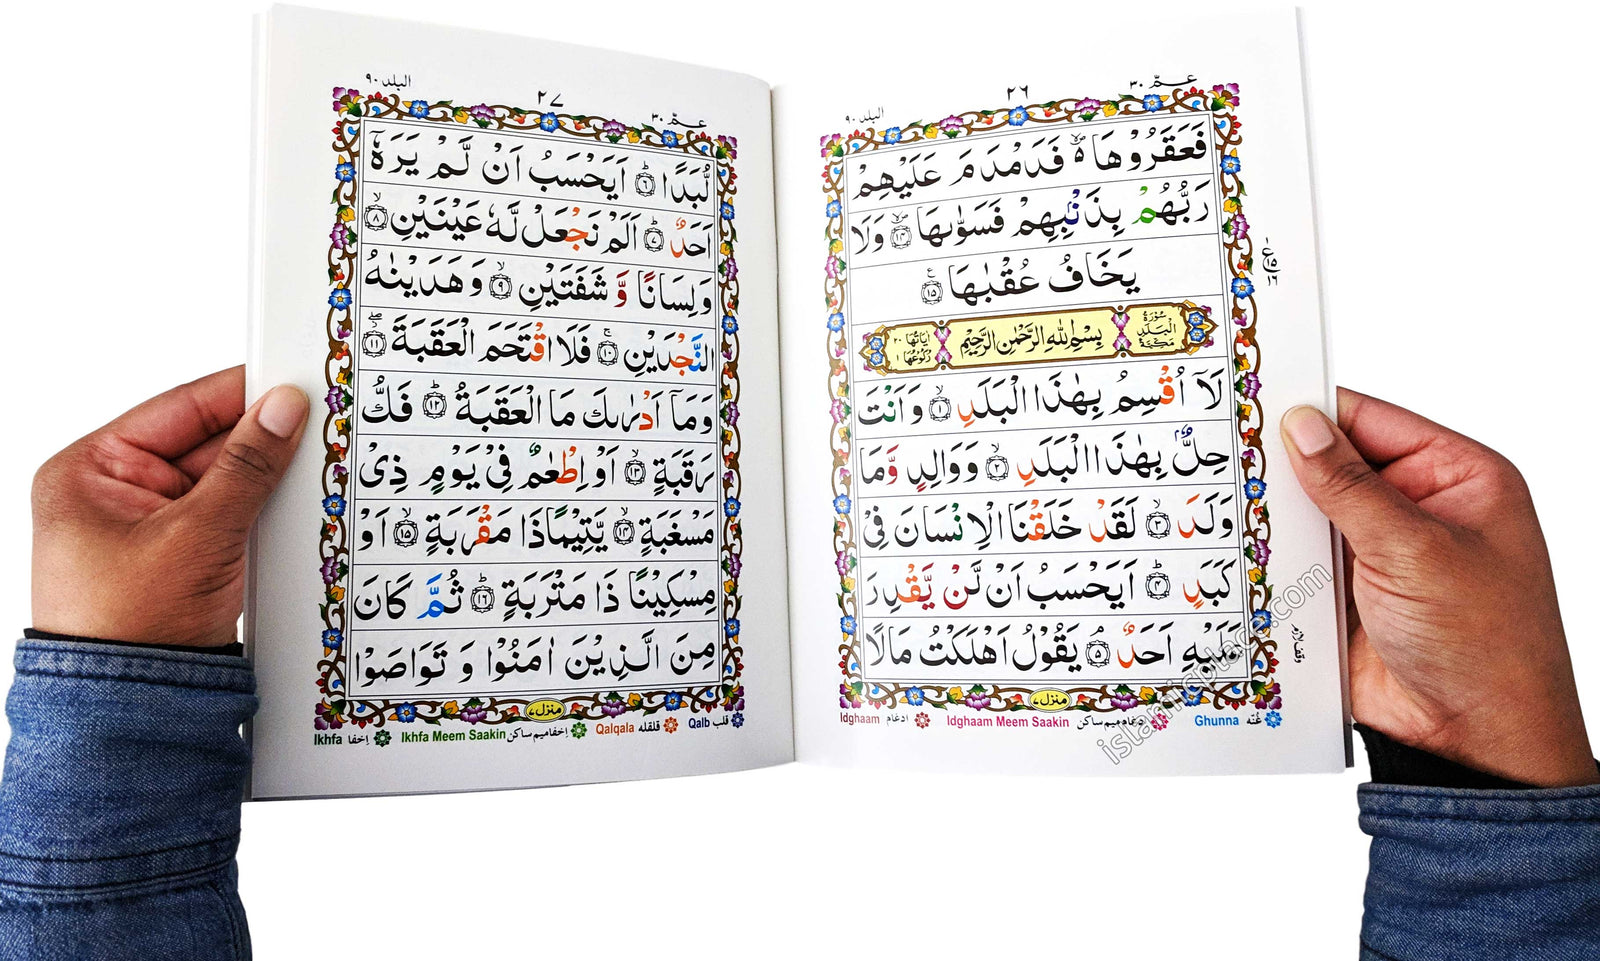 عـمّ ٣٠
٢٦
البلد ٩٠
فَعَقَرُوْهَا ۪ۙ فَدَمْدَمَ عَلَيْهِمْ
رَبُّهُمْ بِذَنْۢبِهِمْ فَسَوّٰىهَا ۪ۙ ١٤ وَلَا
يَخَافُ عُقْبٰهَا ۧ ١٥
ع
١٥
١٦
سُوْرَةُ الْبَلَدِ مَكِّيَّةٌ
بِسْمِ اللهِ الرَّحْمٰنِ الرَّحِيْمِ
اٰيَاتُهَا ٢٠ رُكُوْعُهَا ١
لَاۤ اُقْسِمُ بِهٰذَا الْبَلَدِ ۙ ١ وَاَنْتَ
حِلٌّۢ بِهٰذَا الْبَلَدِ ۙ ٢ وَوَالِدٍ وَّمَا
وَلَدَ ۙ ٣ لَقَدْ خَلَقْنَا الْاِنْسَانَ فِيْ
كَبَدٍ ؕ ٤ اَيَحْسَبُ اَنْ لَّنْ يَّقْدِرَ
عَلَيْهِ اَحَدٌ ۘ ٥ يَقُوْلُ اَهْلَكْتُ مَالًا
وقف لازم
منزل ٧
Idghaam ادغام
Idghaam Meem Saakin ادغام میم ساکن
Ghunna غُنّه
عـمّ ٣٠
٢٧
البلد ٩٠
لُّبَدًا ؕ ٦ اَيَحْسَبُ اَنْ لَّمْ يَرَهٗۤ
اَحَدٌ ؕ ٧ اَلَمْ نَجْعَلْ لَّهٗ عَيْنَيْنِ ۙ ٨
وَلِسَانًا وَّشَفَتَيْنِ ۙ ٩ وَهَدَيْنٰهُ
النَّجْدَيْنِ ۚ ١٠ فَلَا اقْتَحَمَ الْعَقَبَةَ ۖ ١١
وَمَاۤ اَدْرٰىكَ مَا الْعَقَبَةُ ؕ ١٢ فَكُّ
رَقَبَةٍ ۙ ١٣ اَوْ اِطْعٰمٌ فِيْ يَوْمٍ ذِيْ
مَسْغَبَةٍ ۙ ١٤ يَّتِيْمًا ذَا مَقْرَبَةٍ ۙ ١٥ اَوْ
مِسْكِيْنًا ذَا مَتْرَبَةٍ ؕ ١٦ ثُمَّ كَانَ
مِنَ الَّذِيْنَ اٰمَنُوْا وَتَوَاصَوْا
منزل ٧
Ikhfa اخفا
Ikhfa Meem Saakin اخفا میم ساکن
Qalqala قلقله
Qalb قلب
islamicplace.com